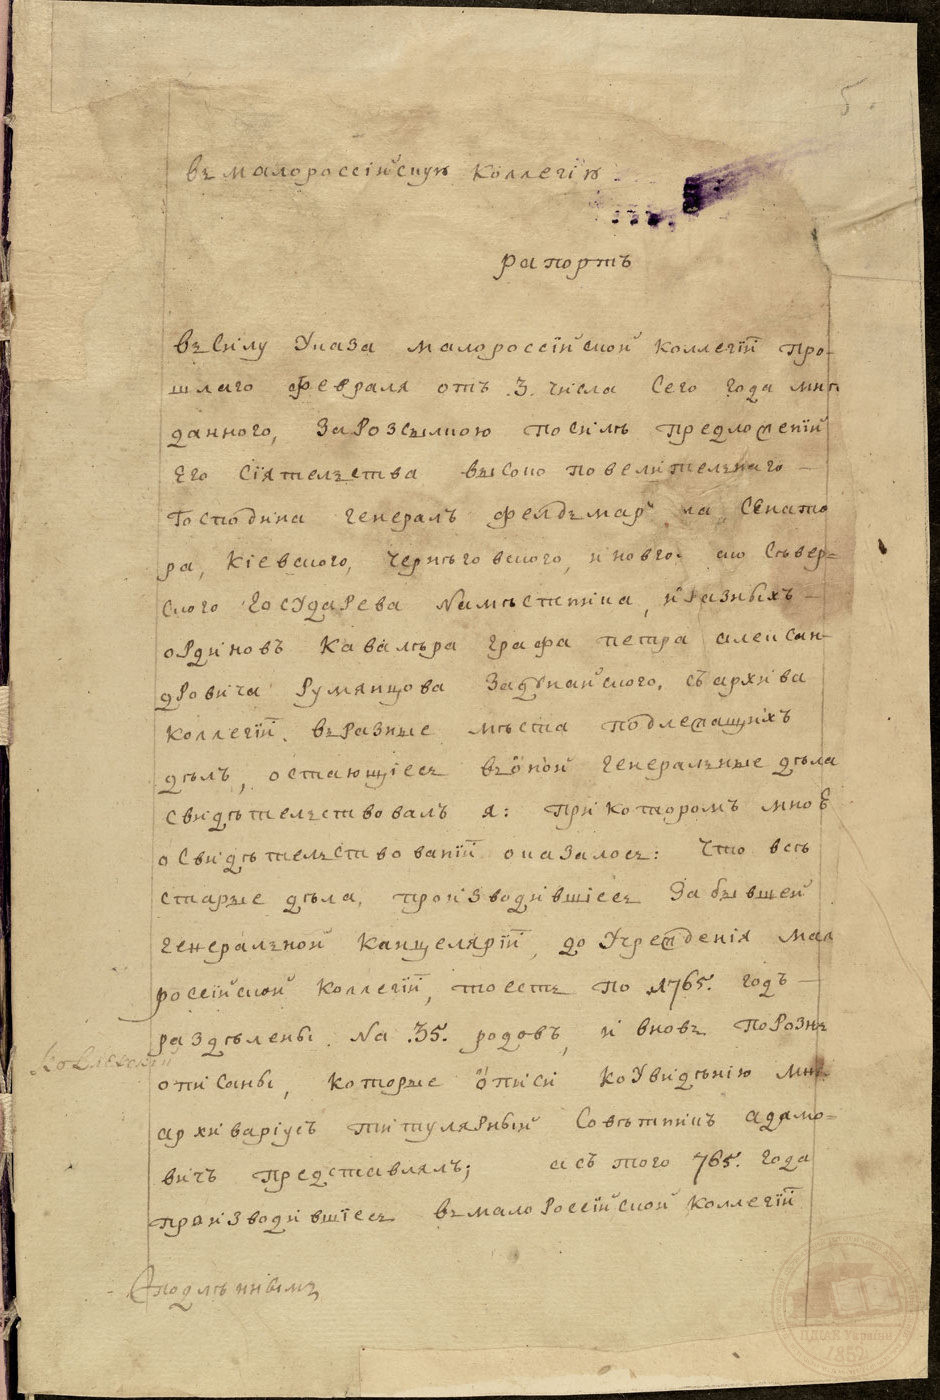 5.
въ малороссійскую коллегію
рапортъ
въ силу Указа малороссійской коллегіи про-
шлаго февраля отъ 3. числа сего года мнѣ
данного, за розсылкою по силѣ предложеній
его сіятельства высокоповелительнаго
Господина генералъ фелдъмаршала сенато
ра, кіевского, чернѣговского, и новгородско сѣвер-
ского Государева намѣстника, и разныхъ
ордіновъ кавалѣра графа петра алексан-
дровича румянцова задунайского, съ архива
коллегіи въ разные мѣста подлежащихъ
дѣлъ, остающіесь въ оной генеральные дѣла
свидѣтельствовалъ я: при которомъ мною
освидѣтельствованіи оказалось: что всѣ
старые дѣла, производившіесь за бывшей
генеральной канцеляріи, до учрежденія мало
россійской коллегіи, тоесть по 1765. годъ
раздѣлены на 35. родовъ, и вновь порознь
описаны, которые описи ко увидѣнію мнѣ
архиваріусъ титулярный совѣтникъ адамо-
вичъ представлялъ; а съ того 765. года
производившіесь въ малороссійской коллегіи
Ковлевскій
Сподлѣннымъ
ЦДІАК України
1852